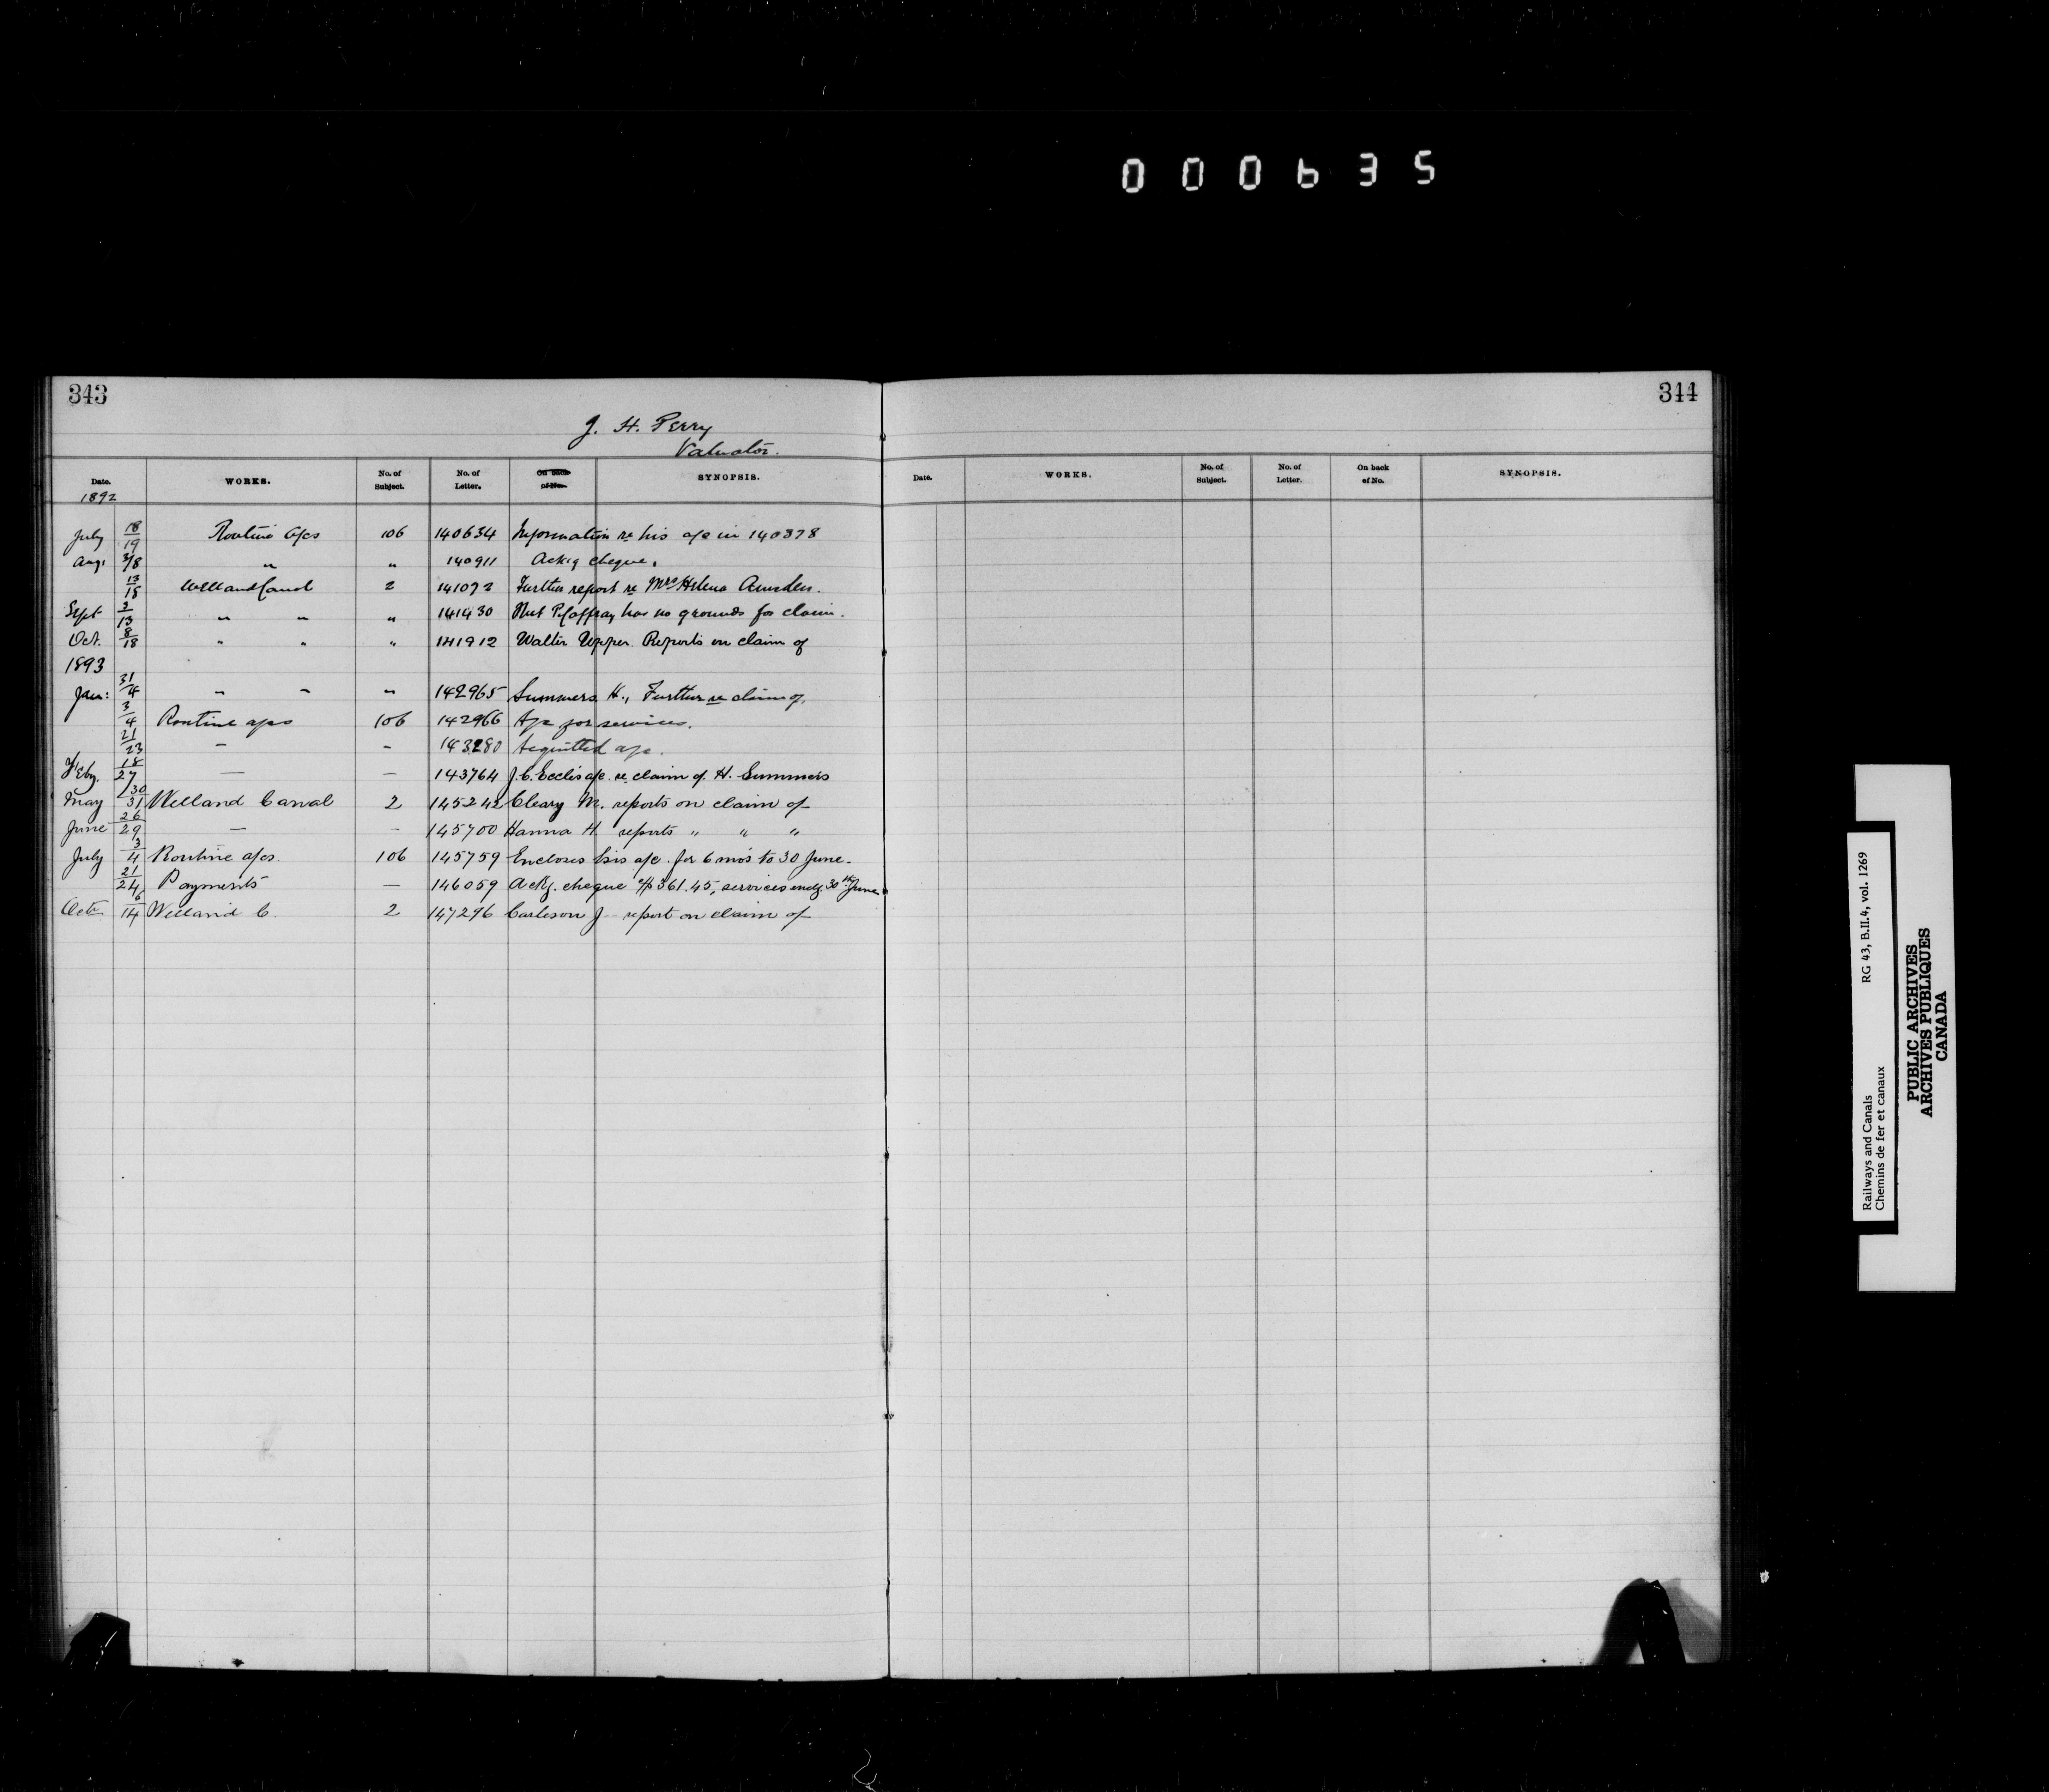 000635
343
344
J. H. Perry
Valuator.
Date. WORKS. No. of Subject. No. of Letter. On back of No. SYNOPSIS.
Date. WORKS. No. of Subject. No. of Letter. On back of No. SYNOPSIS.
1892
July 18/19 Routine a/cs 106 140634 Information re his a/c in 140378
Aug. 3/8 " " 140911 Ackg cheque.
13/18 Welland Canal 2 141092 Further report re Mrs Helena
Sept 2/13 " " " 141430 that P. Caffray has no grounds for claim.
Oct. 8/18 " " " 141912 Walter Upper Reports on claim of
1893
Jan: 31/4 " " " 142965 Summers H., Further re claim of,
3/4 Routine a/cs 106 142966 A/c for services.
21/23 - - 143280 Acquitted a/c.
Feby. 18/27 — — 143764 J.C. Eccles a/c. re. claim of H. Summers
May 30/31 Welland Canal 2 145242 Cleary M. reports on claim of
June 26/29 — — 145700 Hanna H reports " " "
July 3/4 Routine a/cs. 106 145759 Encloses his a/c. for 6 mo's to 30 June.
21/24 Payments — 146059 Ackg. cheque $361.45, services endg. 30th June
Octr 6/14 Welland C. 2 147296 Carleson J report on claim of
Railways and Canals RG 43, B.II.4, vol. 1269
Chemins de fer et canaux
PUBLIC ARCHIVES
ARCHIVES PUBLIQUES
CANADA